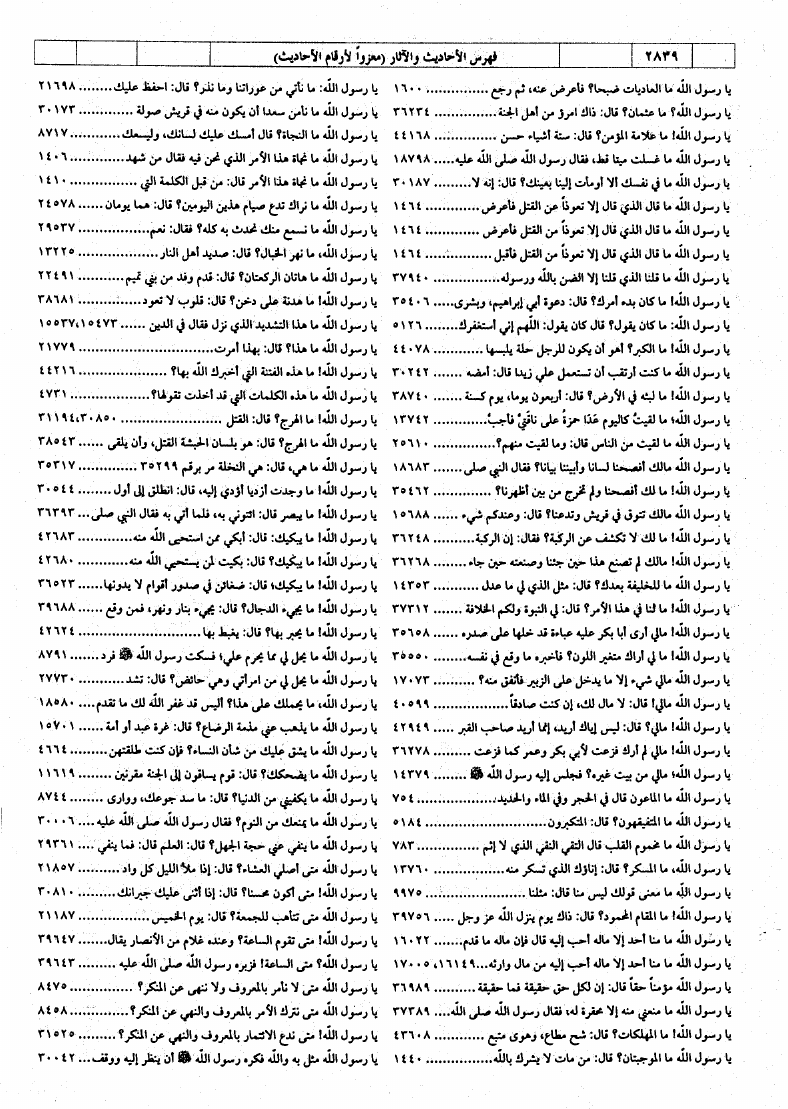 ٢٨٣٩
فهرس الأحاديث والآثار (معزواً لأرقام الأحاديث)
يا رسول الله ما العاديات ضبحا؟ فأعرض عنه، ثم رجع ............... ١٦٠٠
يا رسول الله؟ ما عثمان؟ قال: ذاك امرؤ من أهل الجنة ............... ٣٦٢٣٤
يا رسول الله! ما علامة المؤمن؟ قال: ستة أشياء حسن ............... ٤٤١٦٨
يا رسول الله ما غسلت ميتا قط، فقال رسول الله صلى الله عليه ..... ١٨٧٩٨
يا رسول الله ما في نفسك ألا أومأت إلينا بعينك؟ قال: إنه لا ......... ٣٠١٨٧
يا رسول الله ما قال الذي قال إلا تعوذاً عن القتل فأعرض ............ ١٤٦٤
يا رسول الله ما قال الذي قال إلا تعوذاً من القتل فأعرض ............ ١٤٦٤
يا رسول الله ما قال الذي قال إلا تعوذاً من القتل فأقبل ............ ١٤٦٤
يا رسول الله ما قلنا الذي قلنا إلا الضن بالله ورسوله ............... ٣٧٩٤٠
يا رسول الله! ما كان بدء أمرك؟ قال: دعوة أبي إبراهيم، وبشرى ..... ٣٥٤٠٦
يا رسول الله: ما كان يقول؟ قال كان يقول: اللهم إني أستغفرك ........ ٥١٢٦
يا رسول الله! ما الكبر؟ أهو أن يكون للرجل حلة يلبسها ............ ٤٤٠٧٨
يا رسول الله ما كنت أرتقب أن تستعمل علي زيدا قال: أمضه ....... ٣٠٢٤٢
يا رسول الله! ما لبثه في الأرض؟ قال: أربعون يوما، يوم كسنة ....... ٣٨٧٤٠
يا رسول الله، ما لقيت كاليوم عدا حمزة على ناقتي فأجب ............ ١٣٧٤٢
يا رسول الله ما لقيت من الناس قال: وما لقيت منهم؟ ............... ٢٥٦١٠
يا رسول الله مالك أفصحنا لسانا وأبيننا بيانا؟ فقال النبي صلى ....... ١٨٦٨٣
يا رسول الله! ما لك أفصحنا ولم تخرج من بين أظهرنا؟ ............ ٣٥٤٦٢
يا رسول الله مالك تتوق في قريش وتدعنا؟ قال: وعندكم شيء ...... ١٥٦٨٨
يا رسول الله! ما لك لا تكشف عن الركبة؟ فقال: إن الركبة ......... ٣٦٢٤٨
يا رسول الله! مالك لم تصنع هذا حين جئنا وصنعته حين جاء ....... ٣٦٢٦٨
يا رسول الله ما للخليفة بعدك؟ قال: مثل الذي لي ما عدل ......... ١٤٣٥٣
يا رسول الله! ما لنا في هذا الأمر؟ قال: لي النبوة ولكم الخلافة ....... ٣٧٣١٢
يا رسول الله! مالي أرى أبا بكر عليه عباءة قد خلها على صدره ...... ٣٥٦٥٨
يا رسول الله! ما لي أراك متغير اللون؟ فأخبره ما وقع في نفسه ......... ٣٥٥٥٠
يا رسول الله مالي شيء إلا ما يدخل علي الزبير فأنفق منه؟ ......... ١٧٠٧٣
يا رسول الله مالي! قال: لا مال لك، إن كنت صادقاً ............... ٤٠٥٩٩
يا رسول الله! مالي؟ قال: ليس إياك أريد، إنما أريد صاحب القبر ..... ٤٢٩٤٩
يا رسول الله! مالي لم أرك فزعت لأبي بكر وعمر كما فزعت ......... ٣٦٢٧٨
يا رسول الله؛ مالي من بيت غيره؟ فجلس إليه رسول الله ﷺ ........ ١٤٣٧٩
يا رسول الله ما الماعون قال في الحجر وفي الماء والحديد ............... ٧٥٤
يا رسول الله! ما المتفيقهون؟ قال: المتكبرون ............... ٥١٨٤
يا رسول الله ما مخموم القلب قال التقي النقي الذي لا إثم ............ ٧٨٣
يا رسول الله، ما المسكر؟ قال: إناؤك الذي تسكر منه ............... ١٣٧٦٠
يا رسول الله ما معنى قولك ليس منا قال: مثلنا ............... ٩٩٧٥
يا رسول الله! ما المقام المحمود؟ قال: ذاك يوم ينزل الله عز وجل ..... ٣٩٧٥٦
يا رسول الله ما منا أحد إلا ماله أحب إليه قال فإن ماله ما قدم ...... ١٦٠٢٢
يا رسول الله ما منا أحد إلا ماله أحب إليه من مال وارثه... ١٦١٤٩، ١٧٠٠٥
يا رسول الله مؤمناً حقاً قال: إن لكل حق حقيقة فما حقيقة ......... ٣٦٩٨٩
يا رسول الله ما منعني منه إلا محقرة له، فقال رسول الله صلى الله .... ٣٧٣٨٩
يا رسول الله! ما المهلكات؟ قال: شح مطاع، وهوى متبع ............ ٤٣٦٠٨
يا رسول الله ما الموجبتان؟ قال: من مات لا يشرك بالله ............ ١٤٤٠
يا رسول الله: ما نأتي من عوراتنا وما نذر؟ قال: احفظ عليك ........ ٢١٦٩٨
يا رسول الله ما نأمن سعدا أن يكون منه في قريش صولة ............ ٣٠١٧٣
يا رسول الله ما النجاة؟ قال أمسك عليك لسانك، وليسعك ......... ٨٧١٧
يا رسول الله ما نجاة هذا الأمر الذي نحن فيه فقال من شهد ......... ١٤٠٦
يا رسول الله ما نجاة هذا الأمر قال: من قبل الكلمة التي ............ ١٤١٠
يا رسول الله ما نراك تدع صيام هذين اليومين؟ قال: هما يومان ...... ٢٤٥٧٨
يا رسول الله ما نسمع منك نحدث به كله؟ فقال: نعم ............... ٢٩٥٣٧
يا رسول الله، ما نهر الخبال؟ قال: صديد أهل النار ............... ١٣٢٢٥
يا رسول الله ما هاتان الركعتان؟ قال: قدم وفد من بني تميم ......... ٢٢٤٩١
يا رسول الله! ما هدنة على دخن؟ قال: قلوب لا تعود ............ ٣٨٦٨١
يا رسول الله ما هذا التشديد الذي نزل فقال في الدين ...... ١٥٤٧٣، ١٥٥٣٧
يا رسول الله ما هذا؟ قال: بهذا أمرت ............... ٢١٧٧٩
يا رسول الله! ما هذه الفتنة التي أخبرك الله بها؟ ............... ٤٤٢١٦
يا رسول الله ما هذه الكلمات التي قد أخذت تقولها؟ ............... ٤٧٣١
يا رسول الله! ما الهرج؟ قال: القتل ............... ٣٠٨٥٠، ٣١١٩٤
يا رسول الله! ما الهرج؟ قال: هو بلسان الحبشة القتل، وأن يلقى ...... ٣٨٥٤٣
يا رسول الله ما هي، قال: هي النخلة مر برقم ٣٥٢٩٩ ............ ٣٥٣١٧
يا رسول الله! ما وجدت أزديا أؤدي إليه، قال: انطلق إلى أول ........ ٣٠٥٤٤
يا رسول الله! ما يبصر قال: ائتوني به، فلما أتي به فقال النبي صلى ... ٣٦٣٩٣
يا رسول الله! ما يبكيك: قال: أبكي ممن استحيى الله منه ............ ٤٢٦٨٣
يا رسول الله! ما يبكيك؟ قال: بكيت لمن يستحيي الله منه ......... ٤٢٦٨٠
يا رسول الله! ما يبكيك؛ قال: ضغائن في صدور أقوام لا يدونها ...... ٣٦٥٢٣
يا رسول الله! ما يجيء الدجال؟ قال: يجيء بنار ونهر، فمن وقع ...... ٣٩٦٨٨
يا رسول الله! ما يحبر بها؟ قال: يغبط بها ............... ٤٢٦٢٤
يا رسول الله ما يحل لي مما يحرم علي؛ فسكت رسول الله ﷺ فرد ..... ٨٧٩١
يا رسول الله ما يحل لي من امرأتي وهي حائض؟ قال: تشد ......... ٢٧٧٣٠
يا رسول الله، ما يحملك على هذا؟ أليس قد غفر الله لك ما تقدم .... ١٨٥٨٠
يا رسول الله ما يذهب عني مذمة الرضاع؟ قال: غرة عبد أو أمة ..... ١٥٧٠١
يا رسول الله ما يشق عليك من شأن النساء؟ فإن كنت طلقتهن ........ ٤٦٦٤
يا رسول الله ما يضحكك؟ قال: قوم يساقون إلى الجنة مقرنين ....... ١١٦١٩
يا رسول الله ما يكفيني من الدنيا؟ قال: ما سد جوعك، ووارى ........ ٨٧٤٤
يا رسول الله ما يمنعك من النوم؟ فقال رسول الله صلى الله عليه .... ٣٠٠٠٦
يا رسول الله ما ينفي عني حجة الجهل؟ قال: العلم قال: فما ينفي .... ٢٩٣٦١
يا رسول الله متى أصلي العشاء؟ قال: إذا ملأ الليل كل واد ......... ٢١٨٥٧
يا رسول الله! متى أكون محسنا؟ قال: إذا أثنى عليك جيرانك ......... ٣٠٨١٠
يا رسول الله متى نتأهب للجمعة؟ قال: يوم الخميس ............... ٢١١٨٧
يا رسول الله! متى تقوم الساعة؟ وعنده غلام من الأنصار يقال ....... ٣٩٦٤٧
يا رسول الله؟ متى الساعة! فزبره رسول الله صلى الله عليه ......... ٣٩٦٤٣
يا رسول الله متى لا نأمر بالمعروف ولا ننهى عن المنكر؟ ............ ٨٤٧٥
يا رسول الله! متى نترك الأمر بالمعروف والنهي عن المنكر؟ ......... ٨٤٥٨
يا رسول الله! متى ندع الائتمار بالمعروف والنهي عن المنكر؟ ....... ٣١٥٢٥
يا رسول الله مثل به والله فكره رسول الله ﷺ أن ينظر إليه ووقف ... ٣٠٠٤٢